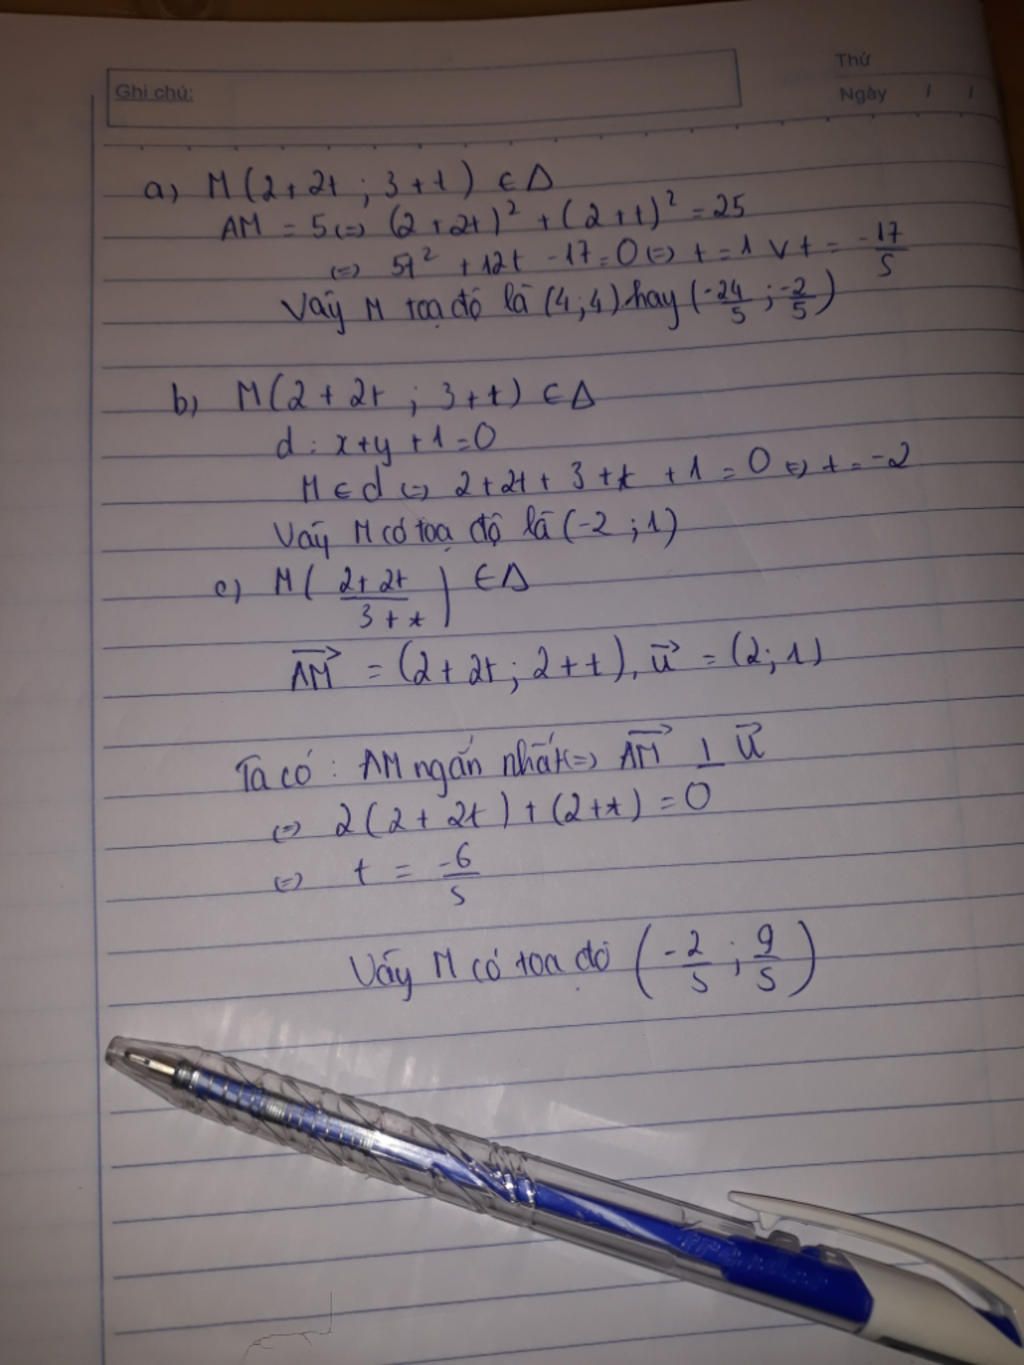 Thứ
Ghi chú:
Ngày / /
a) M(2+2t ; 3+t) ∈ Δ
AM = 5 <=> (2+2t)² + (2+t)² = 25
<=> 5t² + 12t - 17 = 0 <=> t = 1 ∨ t = -17/5
Vậy M toạ độ là (4;4) hay (-24/5 ; -2/5)
b) M(2+2t ; 3+t) ∈ Δ
d : x+y+1=0
M ∈ d <=> 2+2t+3+t+1=0 <=> t=-2
Vậy M có toạ độ là (-2 ; 1)
c) M( 2+2t / 3+t ) ∈ Δ
AM→ = (2+2t ; 2+t), u→ = (2;1)
Ta có : AM ngắn nhất <=> AM→ ⊥ u→
<=> 2(2+2t) + (2+t) = 0
<=> t = -6/5
Vậy M có toạ độ (-2/5 ; 9/5)